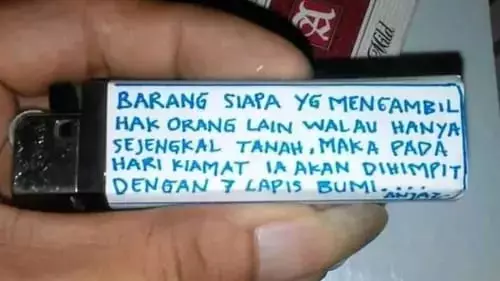 A
Mild
BARANG SIAPA YG MENGAMBIL
HAK ORANG LAIN WALAU HANYA
SEJENGKAL TANAH, MAKA PADA
HARI KIAMAT IA AKAN DIHIMPIT
DENGAN 7 LAPIS BUMI....